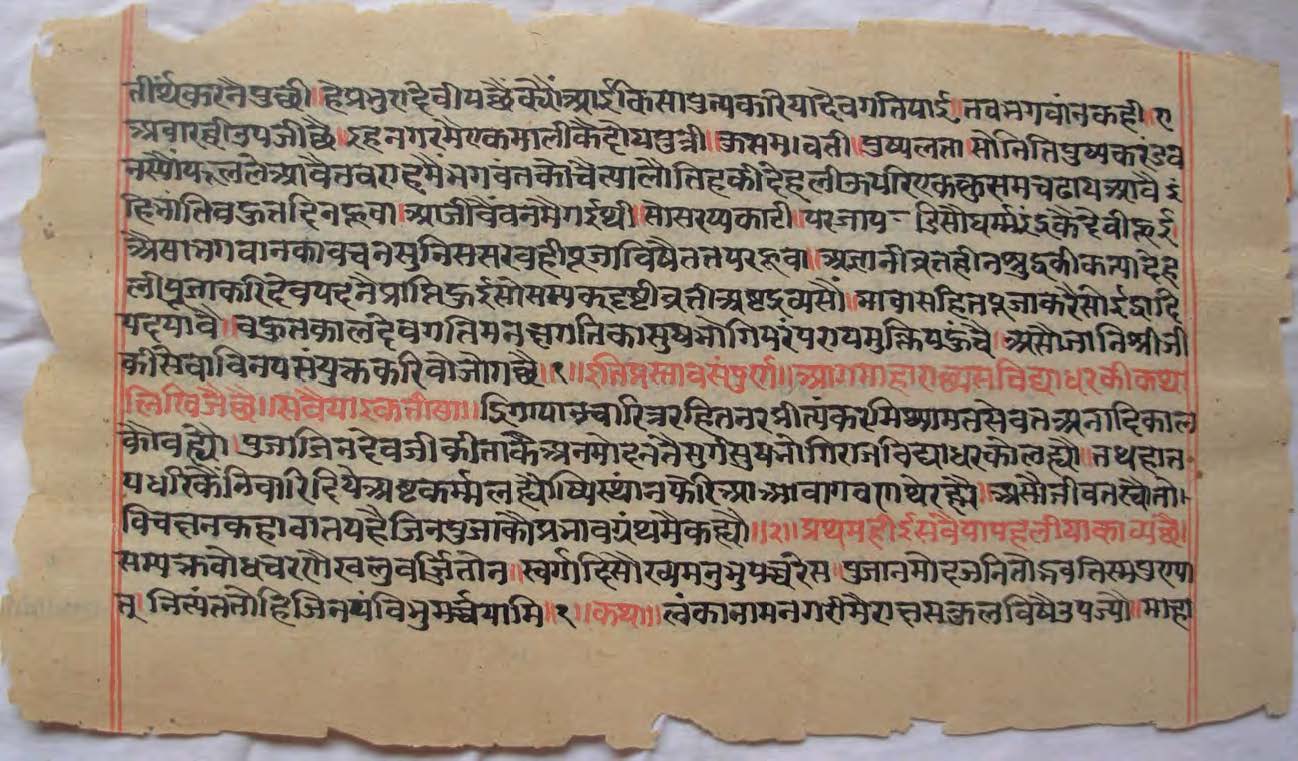 तीर्थंकरनै पुछी॥ हे प्रभु रा देवी यछै क्यौं आई किसा पुन्य करिया देवगति पाई॥ तव भगवांन कही॥ ए
अवारही उपजी छै॥ इह नगरमै एक मालीकै दोय पुत्री॥ कुसमावती॥ पुष्पलता॥ सो निति पुष्पकरंडव
नस्यौं फूल ले आवै तव राहमैं भगवंतको चैत्यालौ तिहकी देहली ऊपरि एक कुसम चढाय आवै इं
हि भांति वहुत दिन हूवा॥ आजी वै वनमै गई थी॥ सो सरप्प काटी॥ पर जाप डि सौधर्म्म इंद्रकै देवी हूई
अैसा भगवानका वचन सुनि स सरव ही पूजाविषै ततपर हूवा॥ अज्ञानी व्रतहीन श्रुद्रकी कन्या देह
ली पूजा करि देवपदनै प्राप्ति हुई सौ सम्यकदृष्टी व्रती अष्टद्रव्यसौं॥ भावासहित पूजा करै सो इंद्रादि
पद पावै॥ वहुतकाल देवगति मनुष्यगतिका सुष भोगि परंपराय मुक्ति पहुंचै॥ अैसो जानि श्रीजी
की सेवा विनयसंयुक्त करिवो जोग छै॥१॥ इति प्रस्ताव संपुर्ण॥ आगै महाराक्ष्यस विद्याधरकी कथा
लिखिजै छै॥ सवैया इकतीसा॥ द्रिग ग्यान चारित्र रहित नर नीत्यं कर मिथ्यामत सेवत अनादिकाल
कौ वह्यौ॥ पुजा जिनदेवजीकी ताकै अनमोदनतै सुर्ग सुष भोगि राज विद्याधरको लह्यौ॥ तथ ज्ञान
प धरिकैं निवारि दियै अष्टकर्म्म लह्यो ष्यिस्थान फेरि आ आवागवण थे रह्यौ॥ अैसौ जीव तरवौ तो॥
विचक्षन कहा वात यहै जिनपुजाकौ प्रभाव ग्रंथमै कह्यौ॥२॥ प्रथम ही ई सवैया पहलीया काव्य छै॥
सम्यक्तवोधचरणैः खलु वर्ज्जितो न॥ स्वर्गादिसौख्यमनुभुय च्चरेस॥ पुजानमोदजनितोद्भवति स्म पुरुषा
त्॥ नित्यं ततो हि जिनपं विभुमर्च्चयामि॥१॥ कथा॥ लंका नाम नगरीमै राक्षसकुलविषै उपज्यौ॥ माहा